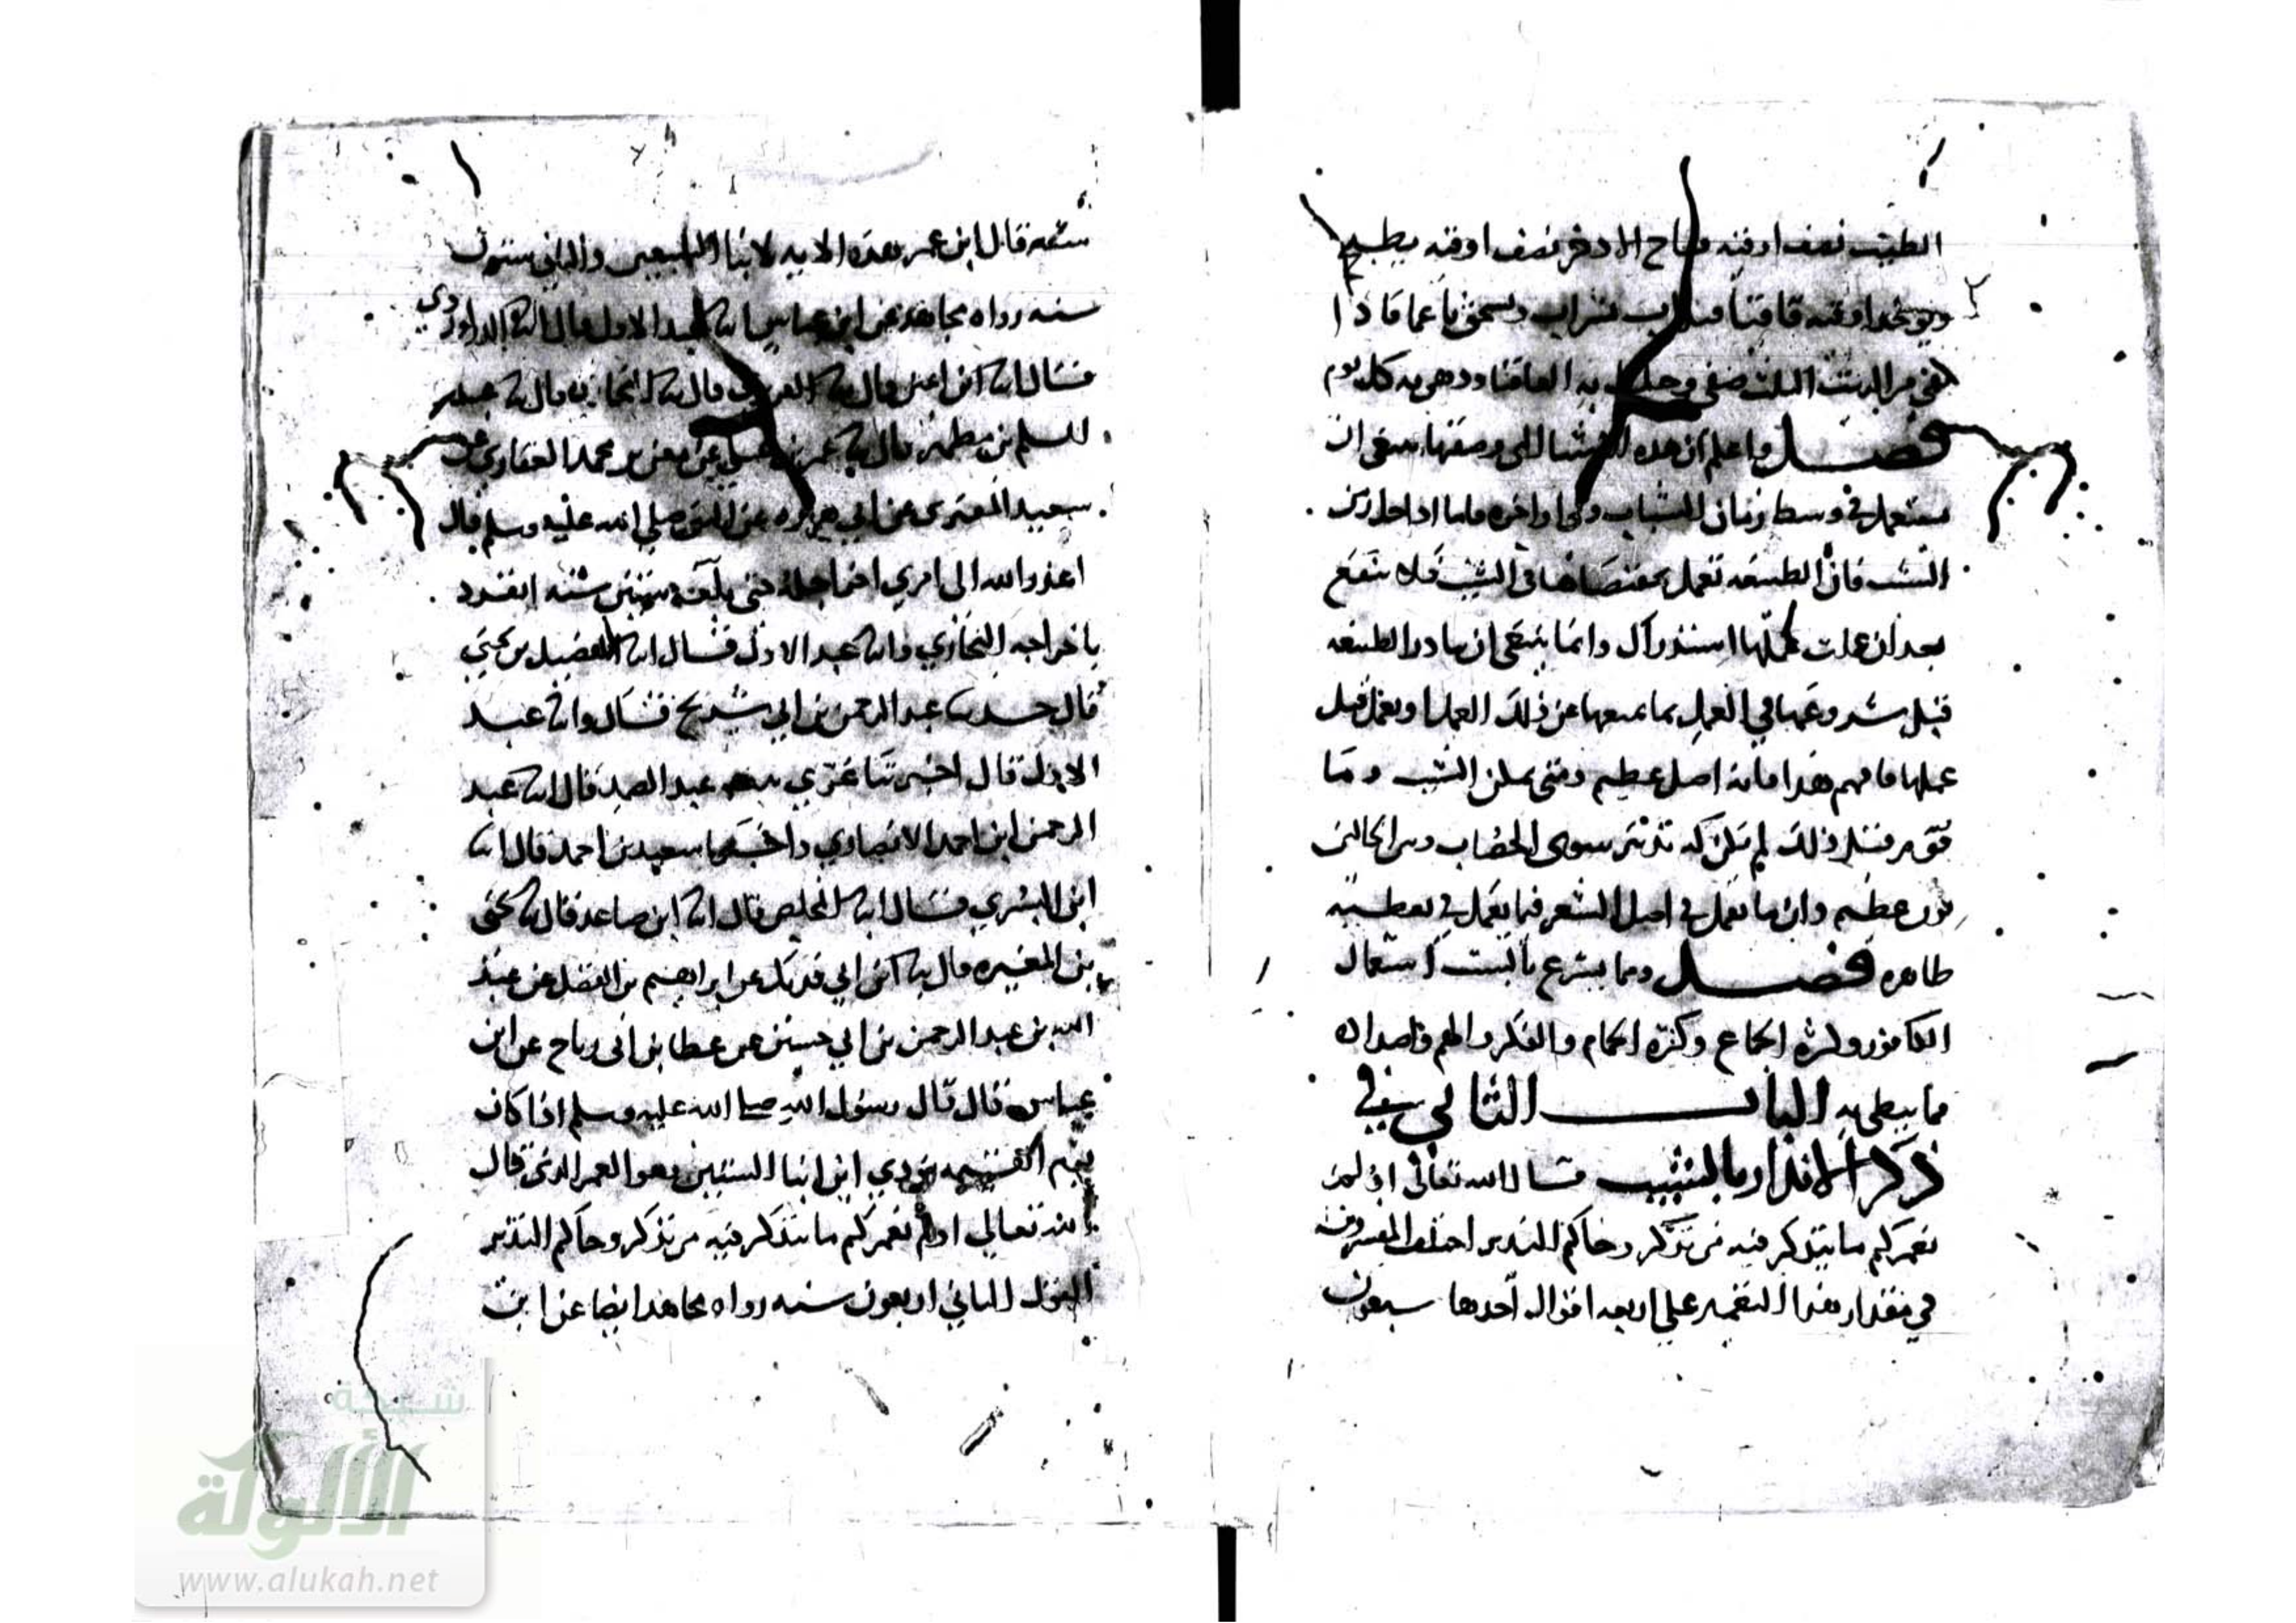 الطيب نصف اوقيه فقاح الاذخر نصف اوقيه يطبخ
ويوخذ اوقيه قاقيا فيذاب بشراب ويسحق ناعما فاذا
بقي من الزيت الثلث صفي وحل به القاقيا ودهن به كل يوم
فصل واعلم ان هذه الاشيا التي وصفتها ينبغي ان
يستعمل في وسط زمان الشباب وفي اواخره فاما اذا حل زمن
الشيب فان الطبيعه تعمل بمقتضاها في الشيب فلا ينفع
بعد ان عملت عملها استدراك وانما ينبغي ان يبادر الطبيعه
قبل شروعها في العمل بما يمنعها عن ذلك العمل او يعمل قبل
عملها فافهم هذا فانه اصل عظيم ومتى تمكن الشيب وما
قووم قبل ذلك لم يكن له تدبير سوى الخضاب وبين الحالتين
بون عظيم واين ما يعمل في اصل الشعر فيما يعمل في تغطية
ظاهره فصل ومما يسرع بالشيب استعمال
الكافور وكثرة الجماع وكثرة الحمام والفكر والهم واضداده
مما يبطي به الباب الثاني في
ذكر الانذار بالشيب قال الله تعالى اولم
نعمركم ما يتذكر فيه من تذكر وجاكم النذير اختلف المفسرون
في مقدار هذا التعمير على اربعه اقوال احدها سبعون
سنه قال ابن عمر هذه الايه لابنا السبعين والثاني ستون
سنه رواه مجاهد عن ابن عباس انا عبد الاول قال انا الداودي
قال انا ابن اعين قال نا الفربري قال نا البخاري قال نا عبد
السلم بن مطهر قال نا عمر بن علي عن معن بن محمد الغفاري عن
سعيد المقبري عن ابي هريره عن النبي صلى الله عليه وسلم قال
اعذر الله الى امري اخر اجله حتى بلغه ستين سنه انفرد
باخراجه البخاري وانا عبد الاول قال انا الفضيل بن يحيى
قال حدثنا عبد الرحمن بن ابي شريح قال وانا عبد
الاول قال اخبرتنا بنت عبد الصمد قال انا عبد
الرحمن ابن احمد الانصاري واخبرنا سعيد بن احمد قال انا
ابن البسري قال انا المخلص قال انا ابن صاعد قال نا يحيى
بن المغيره قال نا ابن ابي فديك عن ابراهيم بن الفضل عن عبد
الله بن عبد الرحمن بن ابي حسين عن عطا بن ابي رباح عن ابن
عباس قال قال رسول الله صلى الله عليه وسلم اذا كان
يوم القيمه نودي اين ابنا الستين وهو العمر الذي قال
الله تعالى اولم نعمركم ما يتذكر فيه من تذكر وجاكم النذير
القول الثاني اربعون سنه رواه مجاهد ايضا عن ابن
شبكة
الألوكة
www.alukah.net